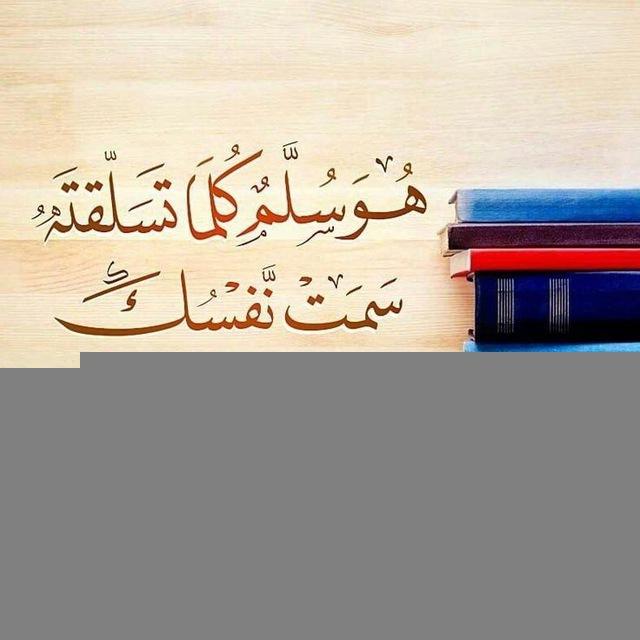 هُوَ سُلَّمٌ كُلَمَا تَسَلّقتَهُ
سَمَتْ نَّفْسُكَ